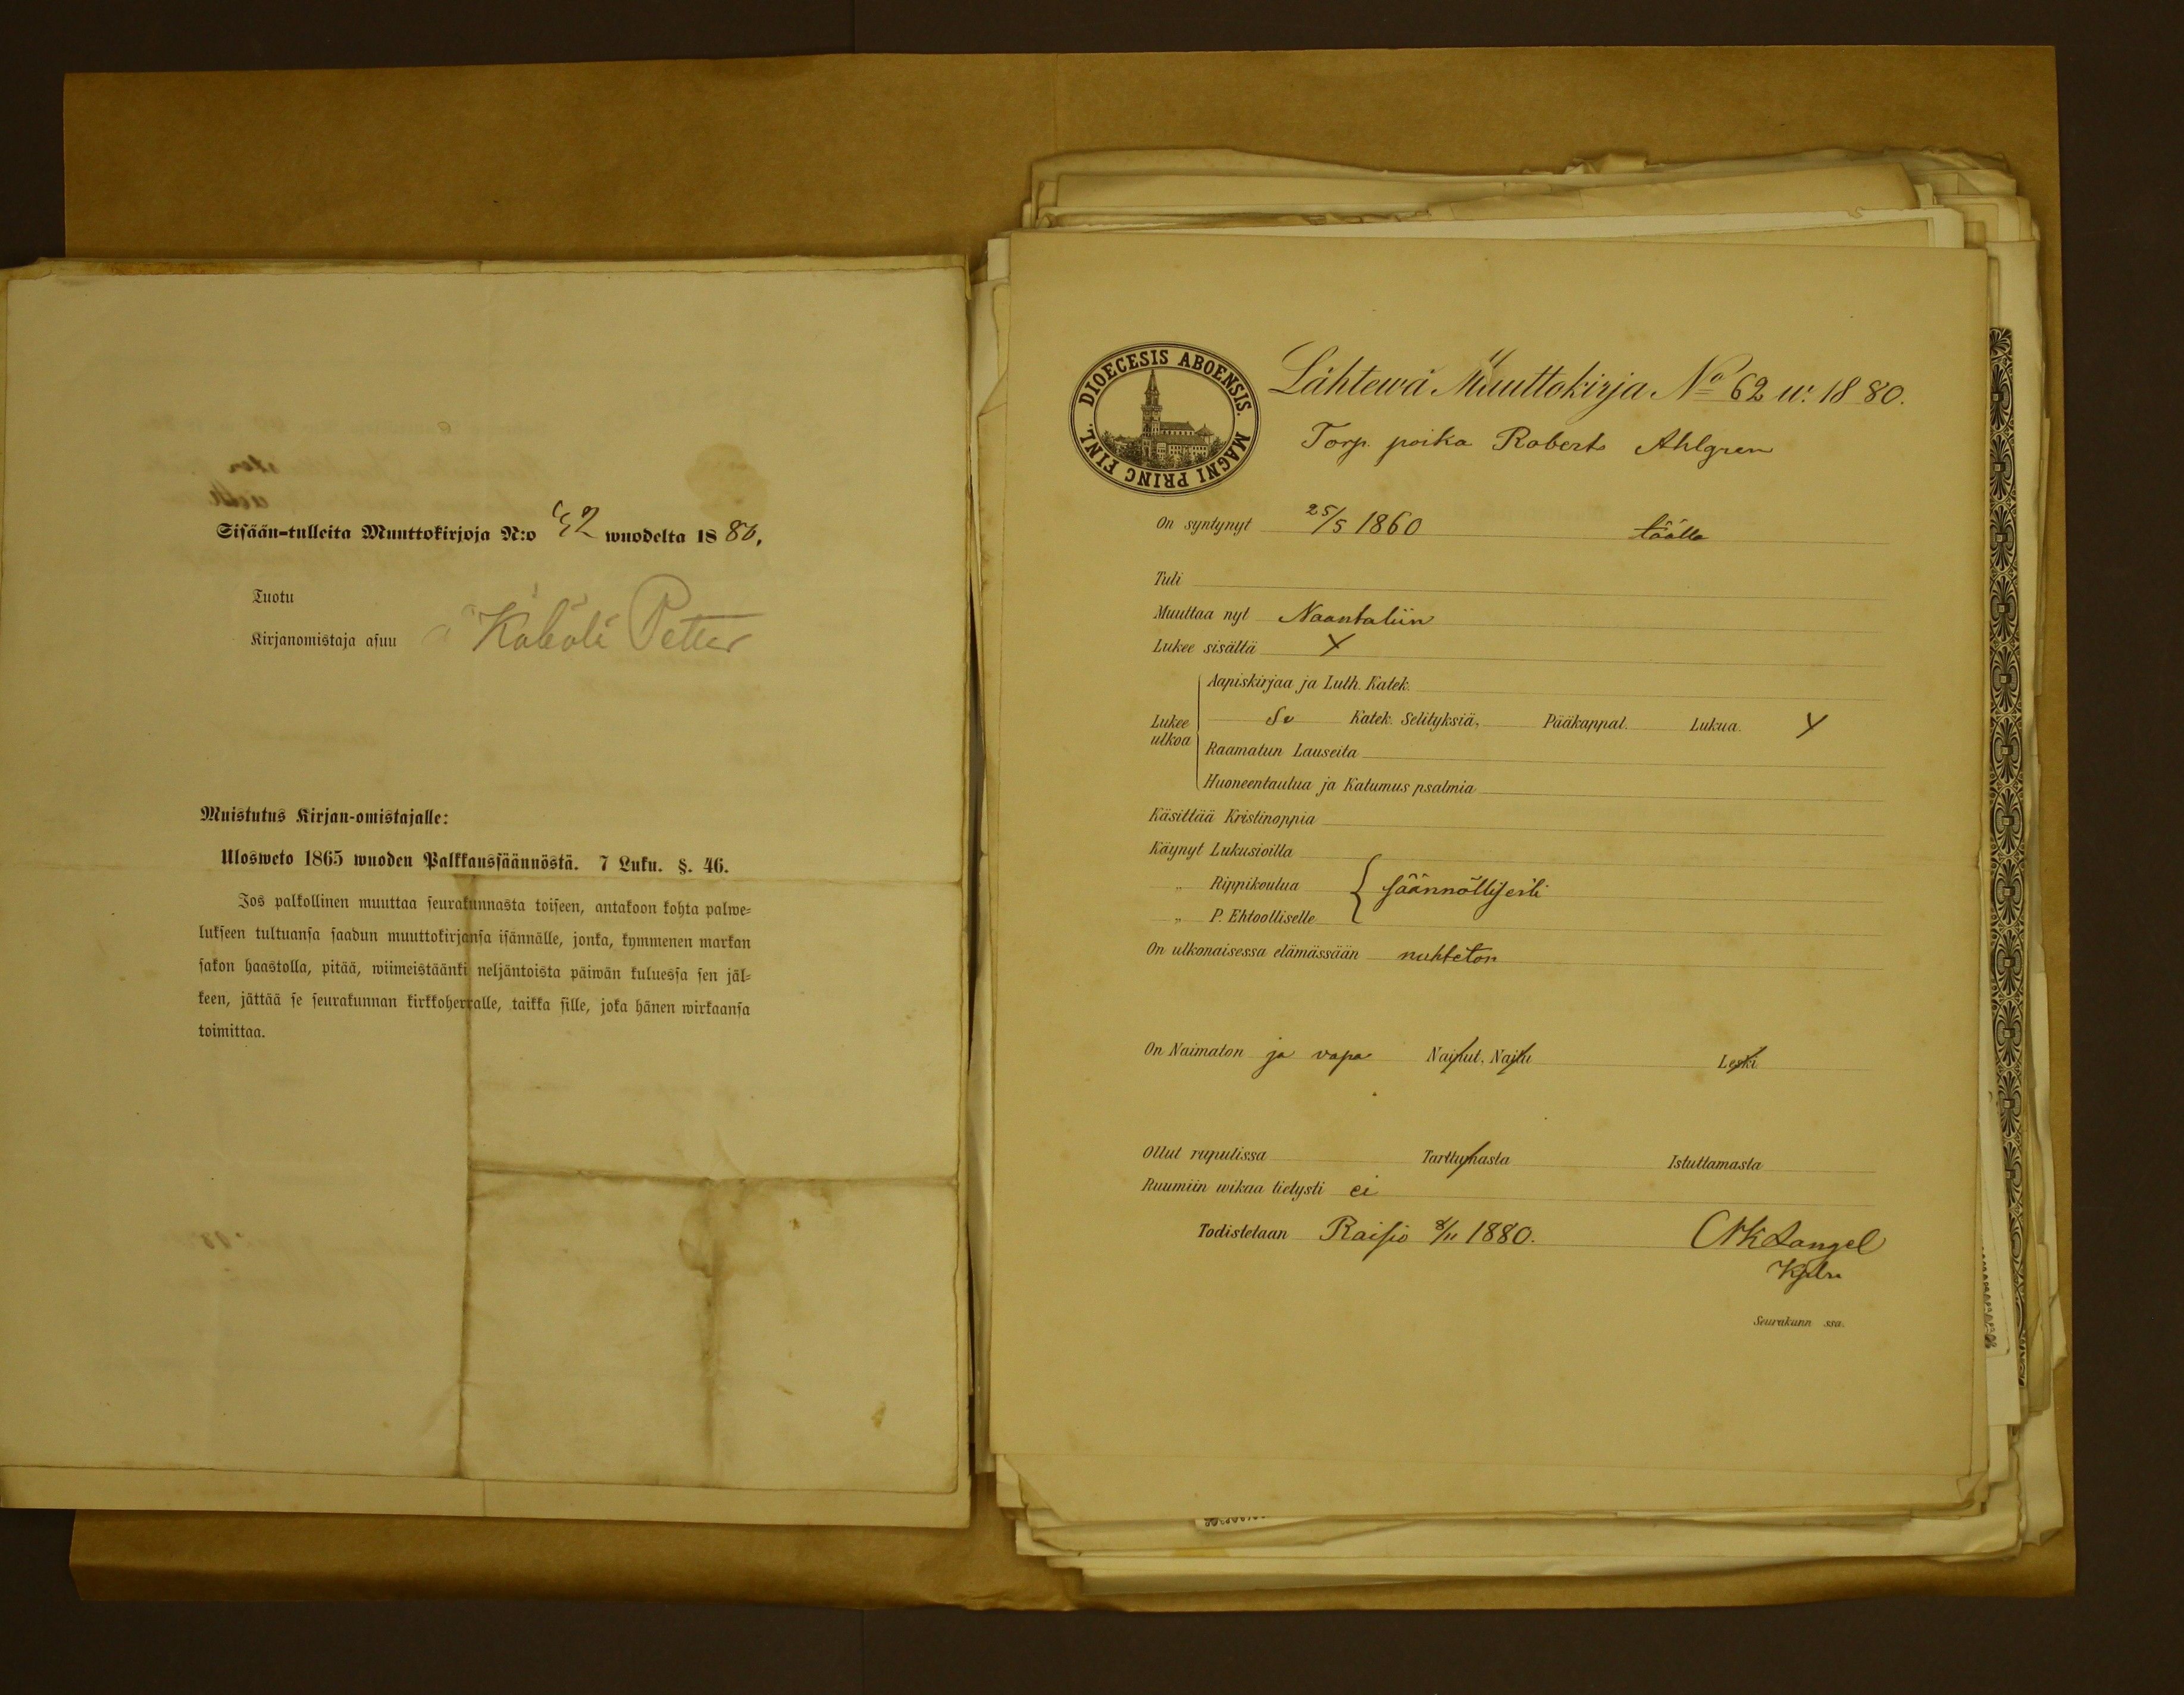 Sisään-tulleita Muuttokirjoja N:o 42 wuodelta 1880.
Tuotu
Kirjanomistaja asuu Petter
Muistutus Kirjan-omistajalle:
Ulosweto 1865 wuoden Palkkaussäännöstä. 7 Luku. §. 46.
Jos palkollinen muuttaa seurakunnasta toiseen, antakoon kohta palwe-
lukseen tultuansa saadun muuttokirjansa isännälle, jonka, kymmenen markan
sakon haastolla, pitää, wiimeistäänki neljäntoista päiwän kuluessa sen jäl-
keen, jättää se seurakunnan kirkkoherralle, taikka sille, joka hänen wirkaansa
toimittaa.
DIOECESIS ABOENSIS. MAGNI PRINC FINL.
Lähtewä Muuttokirja No 62 w. 1880.
Torp. poika Robert Ahlgren
On syntynyt 25/5 1860 täällä
Tuli
Muuttaa nyt Naantaliin
Lukee sisältä X
Lukee ulkoa
Aapiskirjaa ja Luth. Katek.
Sv Katek. Selityksiä, Pääkappal. Lukua. X
Raamatun Lauseita
Huoneentaulua ja Katumus psalmia
Käsittää Kristinoppia
Käynyt Lukusioilla
„ Rippikoulua säännöllisesti
„ P. Ehtoolliselle
On ulkonaisessa elämässään nuhteton
On Naimaton ja vapa Nainut, Naitu Leski
Ollut rupulissa Tarttumasta Istuttamasta
Ruumiin wikaa tietysti ei
Todistetaan Raisio 8/11 1880. Langel
Kpln
Seurakunn ssa.